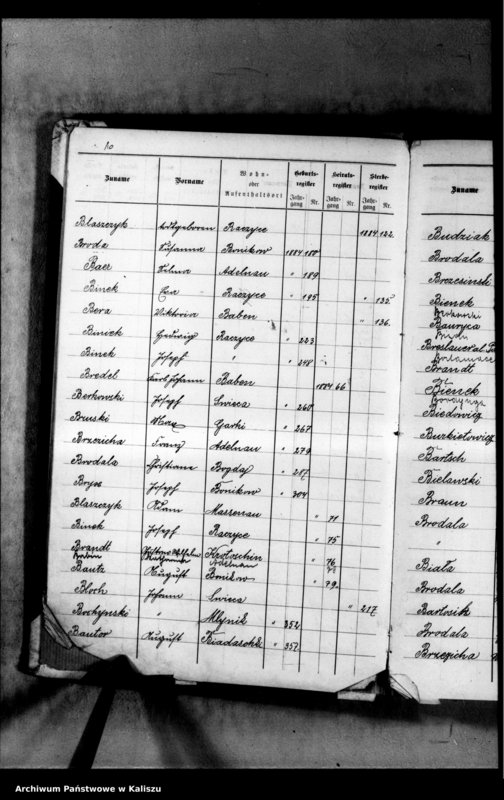 10
Zuname Vorname Wohn- oder Aufenthaltsort Geburts-register Heirats-register Sterbe-register
Jahr-gang Nr. Jahr-gang Nr. Jahr-gang Nr.
Blaszczyk Raczyce 1884 122
Broda Susanna Bonikow 1884 180
Baer Adelnau " 189
Binek Eva Raczyce " 195 " 135
Bera Wiktoria Baben " 136
Hedwig Raczyce " 223
Binek Joseph " " 248
Bredel Karl Johann Baben 1884 66
Borkowski Joseph Swieca " 260
Bruski Garki " 267
Brzezicha Franz Adelnau " 279
Brodala Bogdaj " 287
Bryss Joseph Bonikow " 304
Blaszczyk Adam Marzenau " 71
Binek Joseph Raczyce " 75
Brandt Krotoschin " 76
Babin Adelnau
Bautz August Bonikow " 79
Bloch Johann Swieca " 217
Bochynski " Mlynik " 352
Bautor August " 357
Zuname
Budziak
Brodala
Brzesinski
Bienek
Bauryca
Brandt
Bienek
Biedowicz
Burkietowicz
Bartsch
Bielawski
Braun
Brodala
"
Biała
Brodala
Bartosik
Brodala
Brzezicha
Archiwum Państwowe w Kaliszu